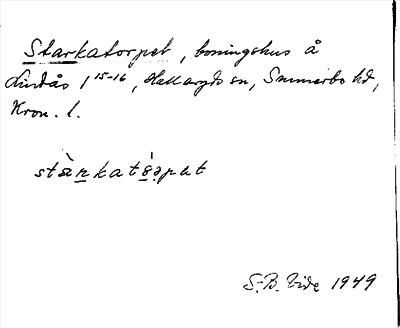 Starkatorpet, boningshus å
Lindås 1 15-16, Hallaryds sn, Sunnerbo hd,
Kron. l.
S.-B. Vide 1949